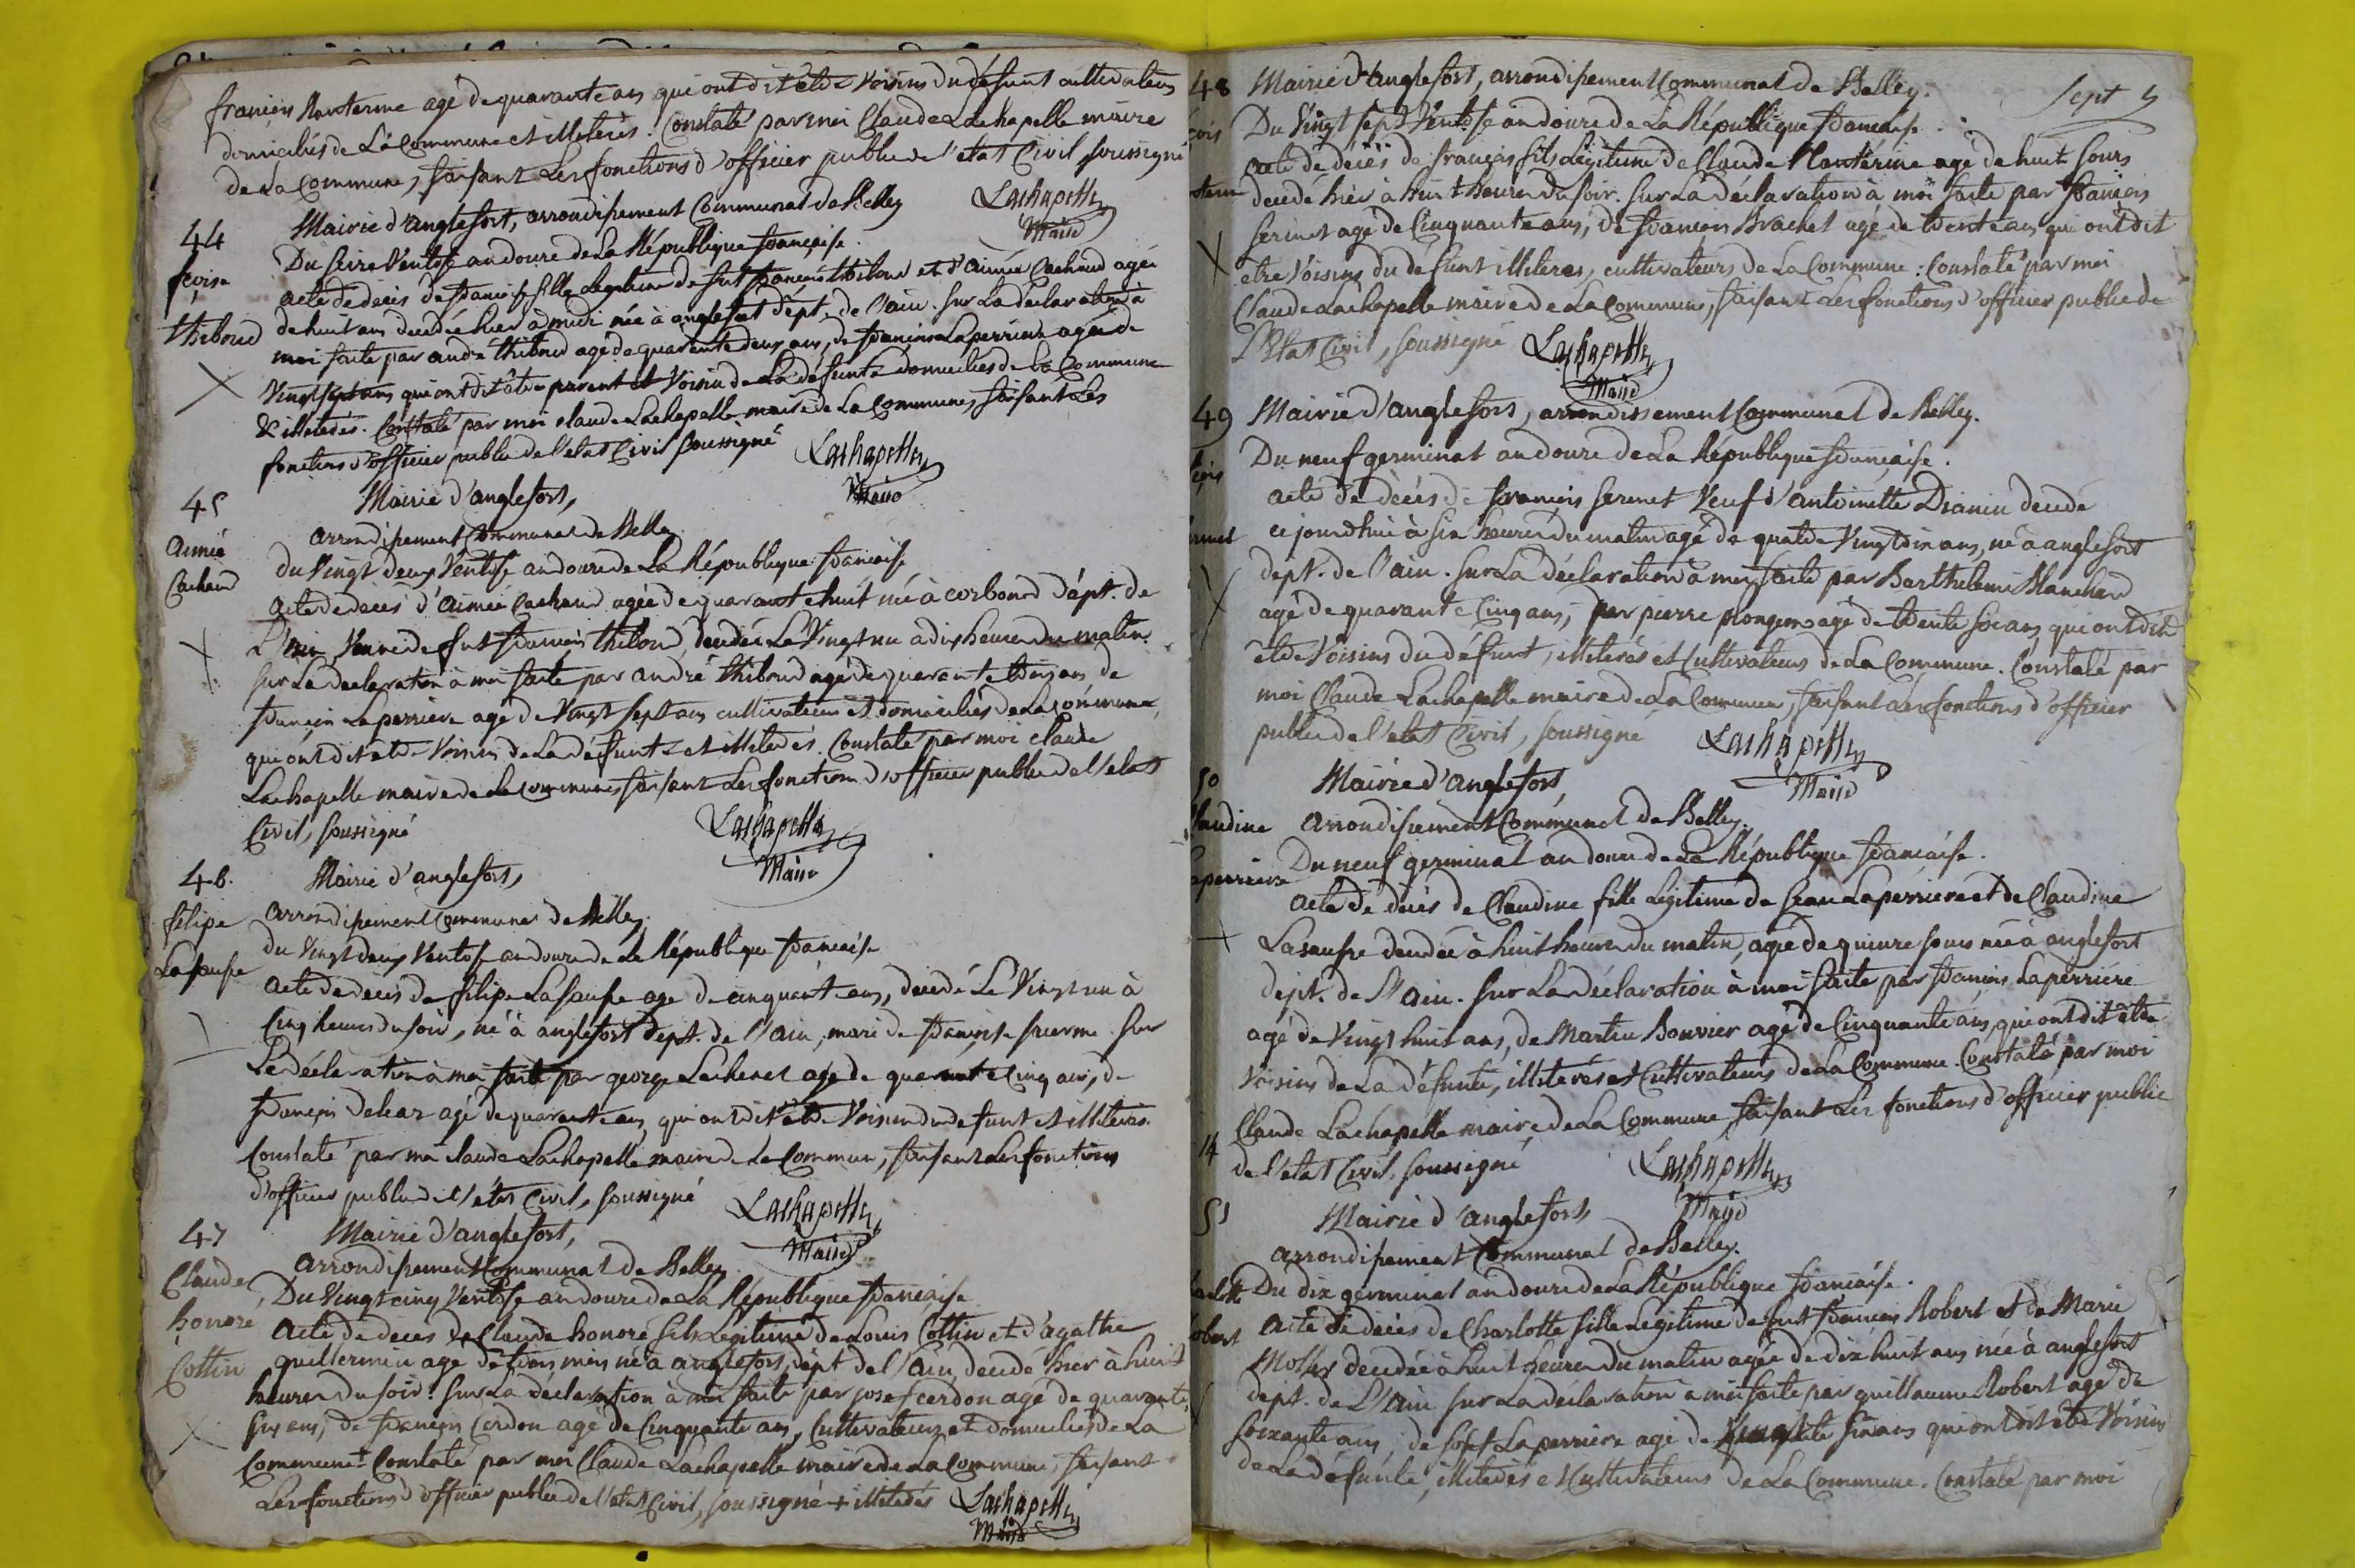 françois Nanterme agé de quarante ans qui ont dit être Voisins du défunt cultivateurs
domiciliés de La Commune et illiterés. Constaté par moi Claude Lachapelle maire
de La Commune, faisant Les fonctions d'officier public de l'etat Civil soussigné
Lachapelle
Maire
44
Mairie d'anglefort, arrondissement Communal de Belley
Du seize Ventose an douze de La République française.
fçoise
thiboud
acte de décès de françoise fille Legitime de fut françois thiboud et d'aimée Cachoud agée
de huit ans décedée hier à midi née à anglefort dépt. de l'ain. sur La déclaration à
moi faite par andré thiboud agé de quarante deux ans, de françois Laperriere agé de
Vingt sept ans qui ont dit être parent et Voisin de La défunte domiciliés de La Commune
& illiterés. Constaté par moi claude Lachapelle maire de La Commune, faisant Les
fonctions d'officier public de l'etat Civil soussigné
Lachapelle
Maire
45
Mairie d'anglefort,
arrondissement Communal de Belley
aimée
Cachoud
du Vingt deux Ventose an douze de La République française
acte de décès d'aimée Cachoud agée de quarante huit née à corbonod dépt. de
L'ain Veuve de fut françois thiboud, décedée Le Vingt un à dix heures du matin.
sur La declaration à moi faite par andré thiboud agé de quarante trois ans de
françois Laperriere agé de Vingt sept ans cultivateurs et domiciliés de La Commune,
qui ont dit etre Voisins de La défunte et illiterés. Constaté par moi claude
Lachapelle maire de La Commune faisant Les fonctions d'officier public de l'etat
Civil, soussigné
Lachapelle
Maire
46.
Mairie d'anglefort,
arrondissement Communal de Belley.
filipe
Lasausse
du Vingt deux Ventose an douze de La République française
acte de décès de filipe Lasausse agé de cinquante ans, décedé Le Vingt un à
Cinq heures du soir, né à anglefort dépt. de l'ain, mari de françoise sur
La déclaration à moi faite par george agé de quarante Cinq ans, de
françois agé de quarante ans, qui ont dit être Voisins du defunt et illiterés.
Constaté par moi claude Lachapelle maire de La Commune, faisant Les fonctions
d'officier public de l'état Civil, soussigné
Lachapelle
Maire
47
Mairie d'anglefort,
arrondissement Communal de Belley
Claude
honoré
Cottin
Du Vingt cinq Ventose an douze de La République française
acte de deces de Claude honoré fils Légitime de Louis Cottin et d'agathe
guillermin agé de trois mois né à anglefort, dépt de l'ain, decedé hier à huit
heures du soir. sur La déclaration à moi faite par josef cerdon agé de quarante
six ans, de françois Cerdon agé de Cinquante ans, Cultivateurs et domiciliés de La
Commune + Constaté par moi Claude Lachapelle maire de La Commune, faisant
Les fonctions d'officier public de l'etat Civil, soussigné + illiterés
Lachapelle
Maire
48
Mairie d'anglefort, arrondissement Communal de Belley.
sept
çois
Du Vingt sept Ventose an douze de La République française.
acte de décès de françois fils Légitime de Claude Nanterme agé de huit jours
decedé hier à huit heures du soir. sur La déclaration à moi faite par françois
serinet agé de Cinquante ans, de françois Brachet agé de trente ans qui ont dit
être Voisins du defunt illiteres, cultivateurs de La Commune. Constaté par moi
Claude Lachapelle maire de La Commune, faisant Les fonctions d'officier public de
L'Etat Civil, soussigné
Lachapelle
Maire
49
Mairie d'anglefort, arrondissement Communal de Belley.
Du neuf germinal an douze de La République française.
çois
acte de décès de françois serinet Veuf d'antoinette decedé
ce jourd'hui à six heures du matin agé de quatre Vingt dix ans, né à anglefort
dept. de l'ain. sur La déclaration à moi faite par Barthelemi Blanchard
agé de quarante Cinq ans, par pierre agé de trente six ans, qui ont dit
etre Voisins du défunt, illiterés et Cultivateurs de La Commune. Constaté par
moi Claude Lachapelle maire de La Commune, faisant Les fonctions d'officier
public de l'etat Civil, soussigné
Lachapelle
Maire
50
Mairie d'anglefort,
laudine
aperriere
arrondissement Communal de Belley.
Du neuf germinal an douze de La République française.
acte de décès de Claudine fille Légitime de Jean Laperriere et de Claudine
Lasausse decedée à huit heures du matin, agée de quinze jours née à anglefort
dept. de l'ain. sur La déclaration à moi faite par françois Laperriere
agé de Vingt huit ans, de Martin Bouvier agé de Cinquante ans, qui ont dit être
Voisins de La défunte, illiterés et Cultivateurs de La Commune. Constaté par moi
Claude Lachapelle maire de La Commune, faisant Les fonctions d'officier public
14
de l'etat Civil, soussigné
Lachapelle
Maire
51
Mairie d'anglefort,
arrondissement Communal de Belley.
obert
Du dix germinal an douze de La République française.
acte de décès de Charlotte fille Légitime de fut françois Robert et de Marie
decedée à huit heures du matin agée de dix huit ans née à anglefort
dept. de L'ain sur La déclaration à moi faite par guillaume Robert agé de
soixante ans, de josef Laperriere agé de six ans qui ont dit etre Voisins
de La défunte, illiterés et Cultivateurs de La Commune. Constaté par moi